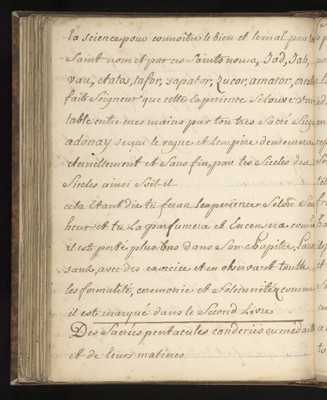 la science pour connoitre le bien et le mal par le
Saint nom et par ces Saints noms, Jod, Jah,
vau, etatos, tafor, sapator, Zucor, amator, creator
faits Seigneur que cette Experience se trouve veri
table entre mes mains par ton tres Sacré Seig
adonay de qui le regne et l'empire demeurera
eternellement et Sans fin par les Siecles des
Siecles ainsi Soit-il
cela Etant dit tu feras l'experience Selon Son
heure et tu la parfumera et Encensera comme
il est porté plus bas dans Son chapitre,
avec des et en observant toutte
les formalités, ceremonie et Solemnitéz comme
il est marqué dans le Second Livre
Des Sacrées pentacules ou medailles
et de leurs matieres